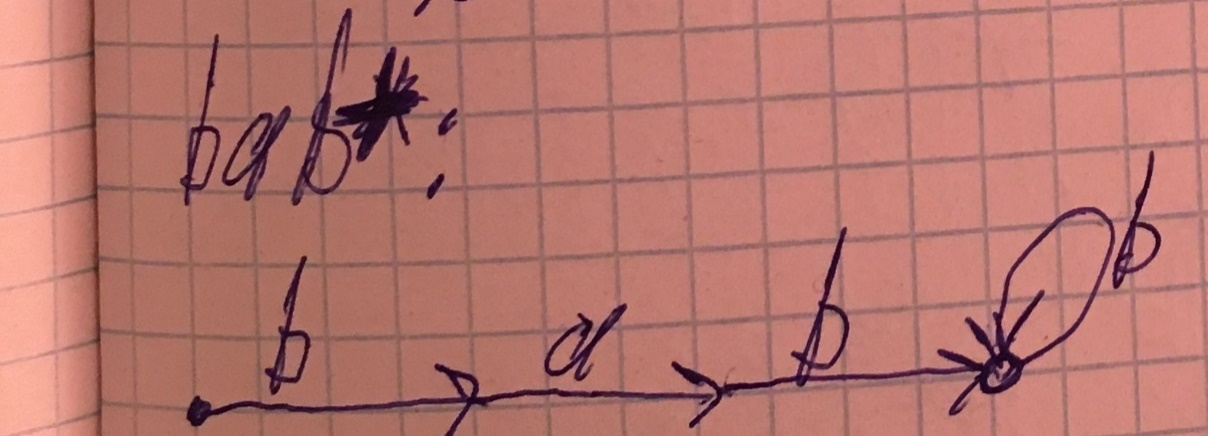 bab*:
b a b b